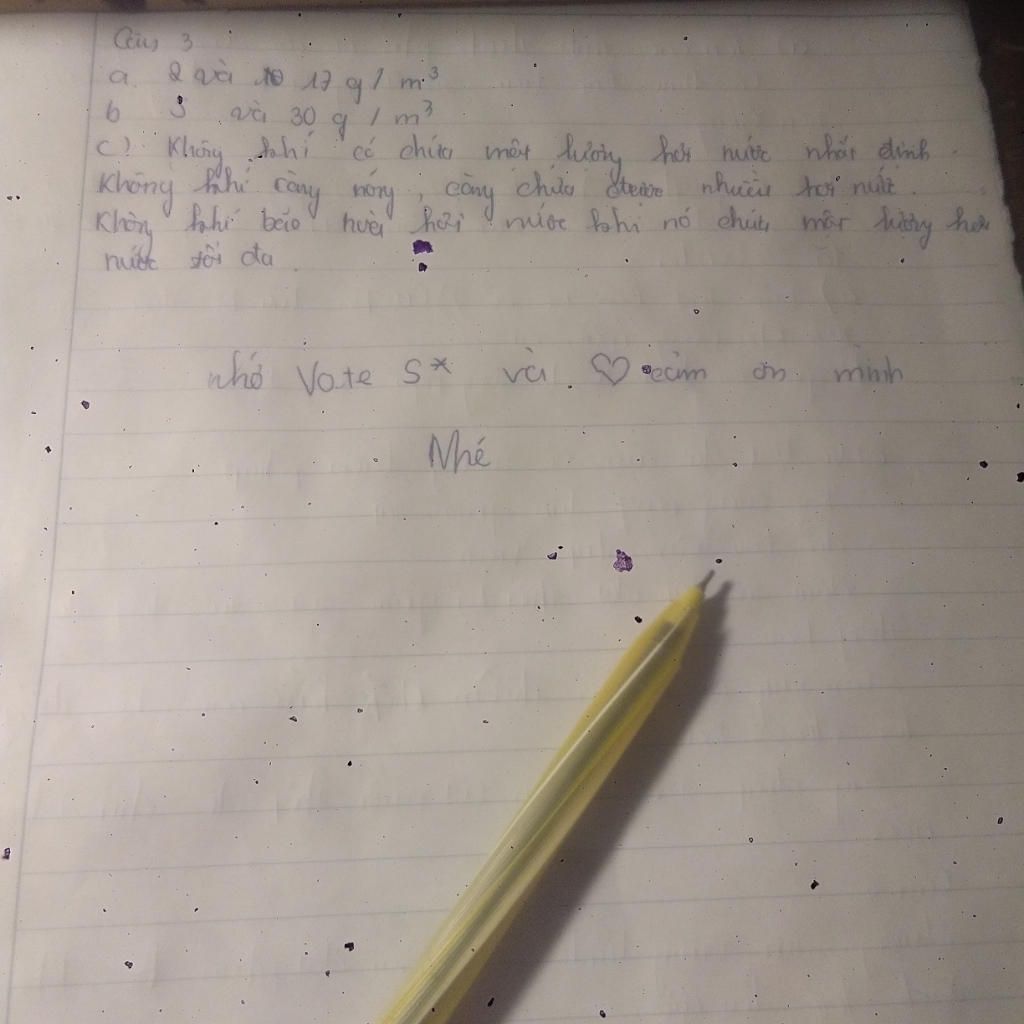 Câu 3
a. 2 và 17 g / m³
b 5 và 30 g / m³
c) Không khí có chứa một lượng hơi nước nhất định.
Không khí càng nóng, càng chứa được nhiều hơi nước.
Không khí bão hoà hơi nước khi nó chứa một lượng hơi
nước tối đa.
nhớ Vote 5* và ♡ cảm ơn mình
Nhé